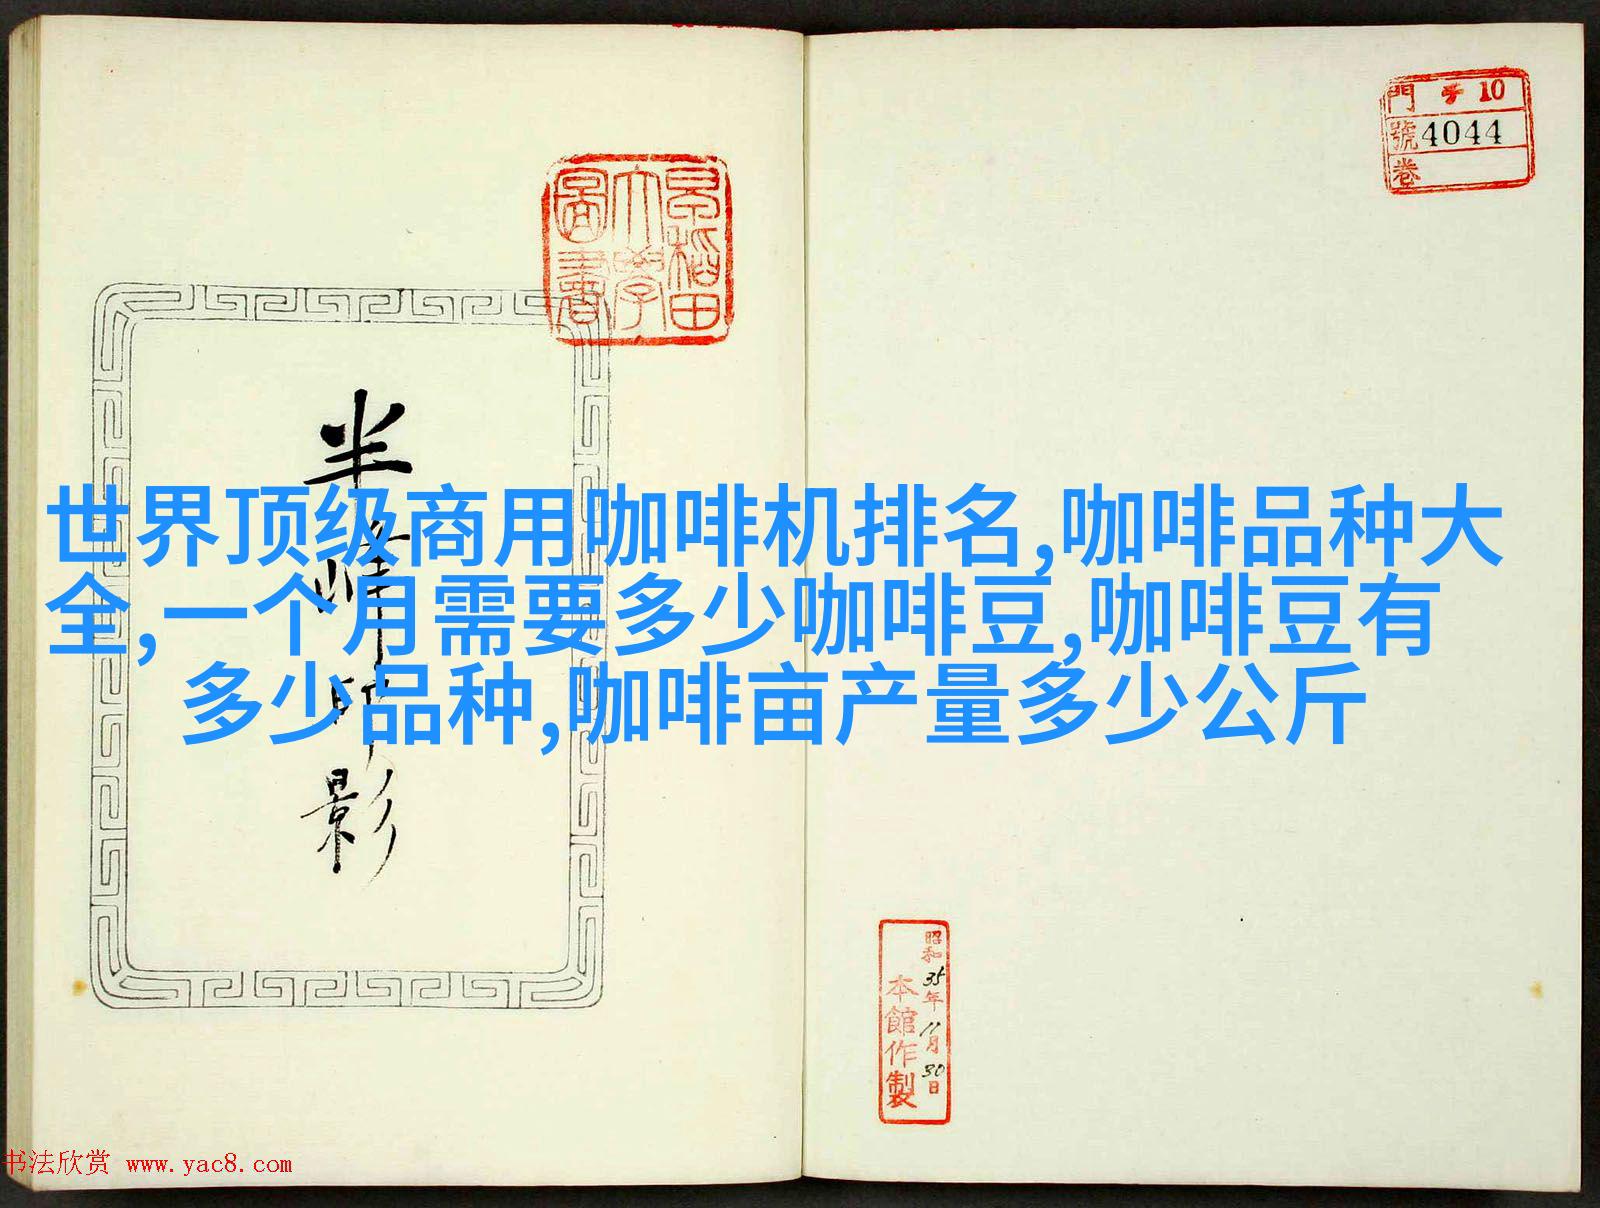 門 チ 10
號 4044
卷
早稻田
大學
圖書
半峰印影
世界顶级商用咖啡机排名,咖啡品种大
全,一个月需要多少咖啡豆,咖啡豆有
多少品种,咖啡亩产量多少公斤
昭和35年11月30日
本館作製
书法欣赏 www.yac8.com